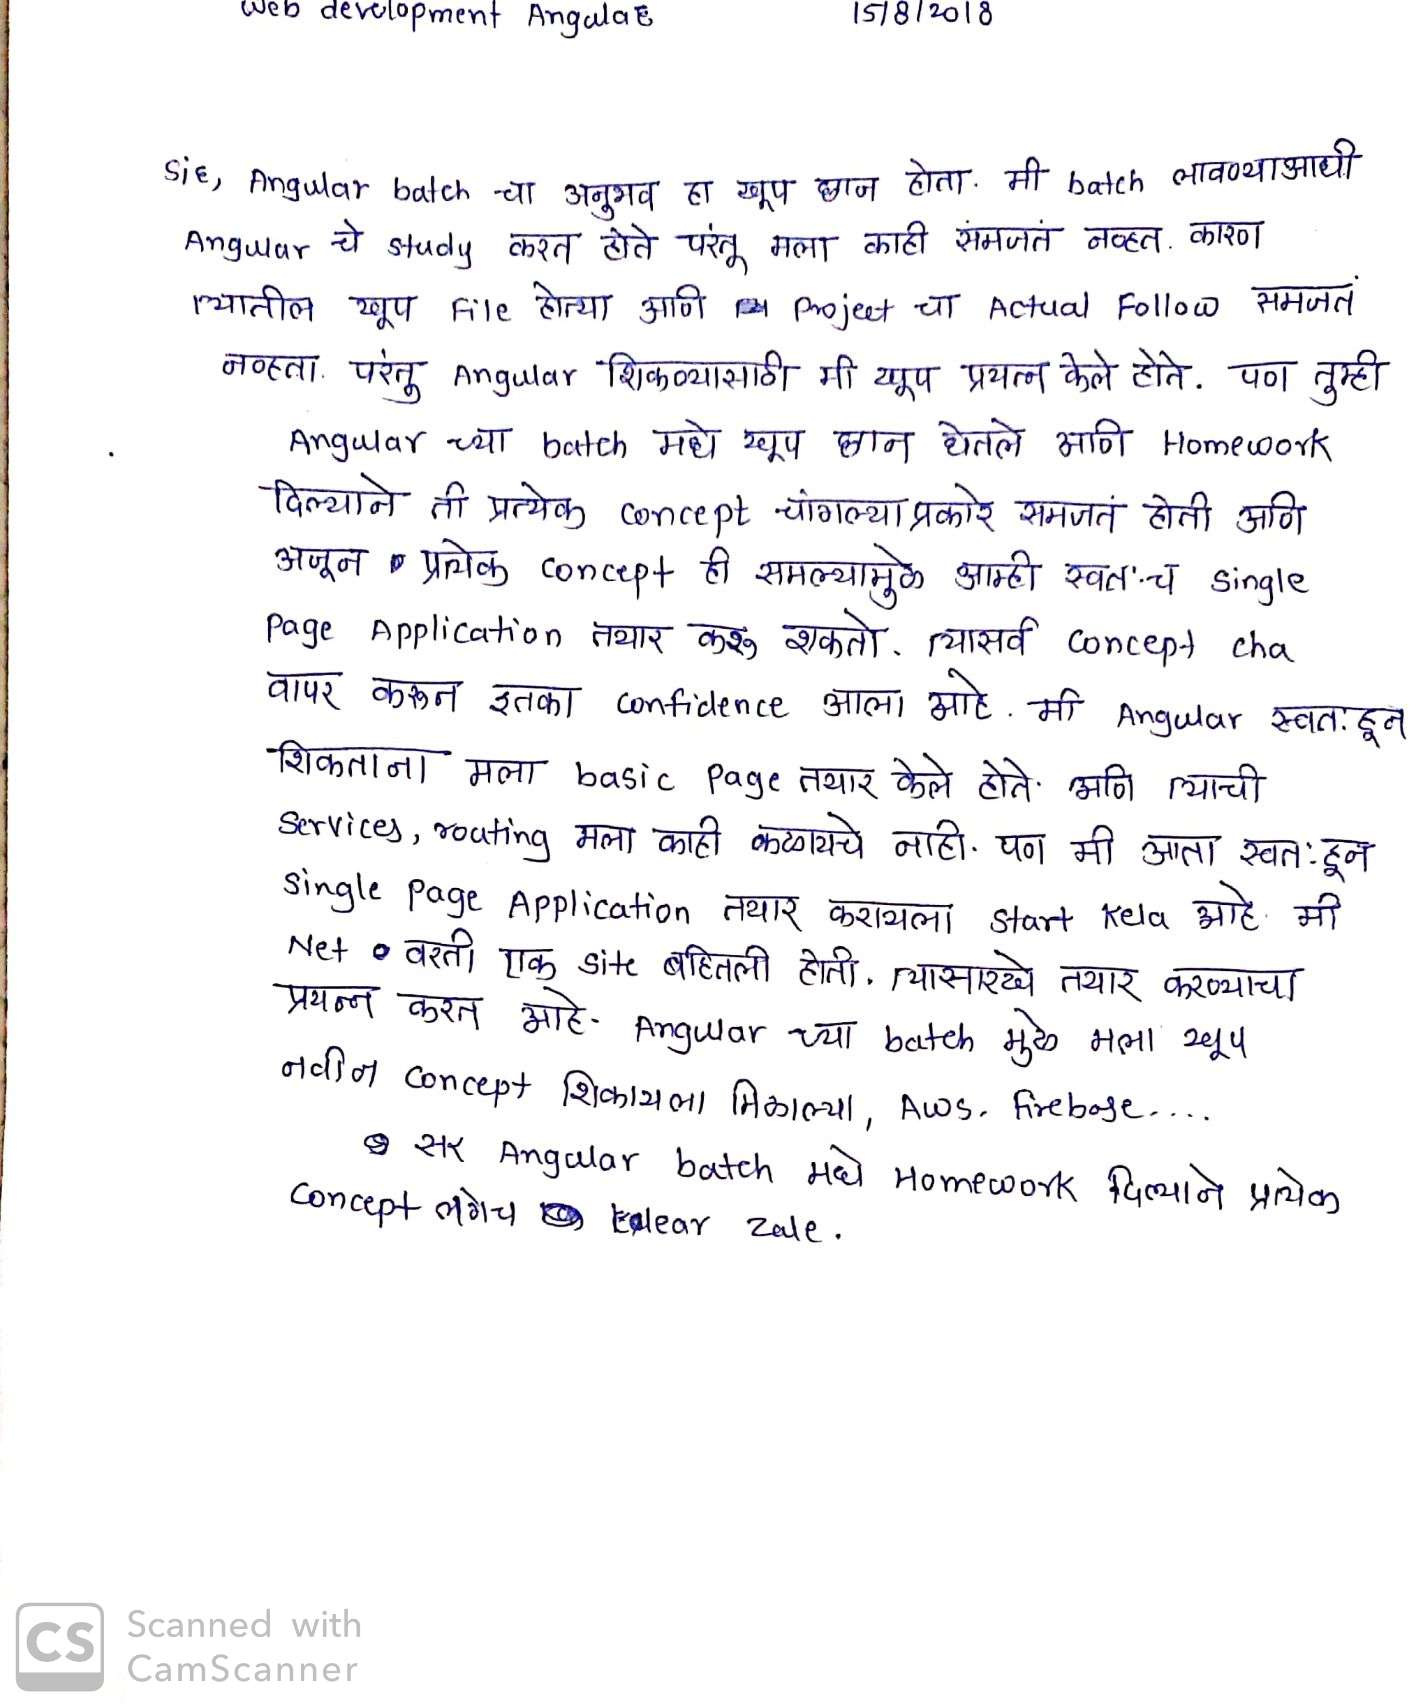 Web development Angular 15/8/2018
Sir, Angular batch चा अनुभव हा खूप छान होता. मी batch लावण्याआधी
Angular चे study करत होते परंतू मला काही संमजतं नव्हत. कारण
त्यातील खूप File होत्या आणि Project चा Actual Follow समजतं
नव्हता. परंतु Angular शिकण्यासाठी मी खूप प्रयत्न केले होते. पण तुम्ही
Angular च्या batch मधे खूप छान घेतले आणि Homework
दिल्याने ती प्रत्येक concept चांगल्याप्रकारे समजतं होती आणि
अजून प्रत्येक concept ही समल्यामुळे आम्ही स्वतःच single
Page Application तयार करू शकतो. त्यासर्व concept cha
वापर करून इतका confidence आला आहे. मी Angular स्वतःहून
शिकताना मला basic Page तयार केले होते. आणि त्याची
Services, routing मला काही कळायचे नाही. पण मी आता स्वतःहून
Single Page Application तयार करायला start kela आहे. मी
Net वरती एक site बहितली होती. त्यासारखे तयार करण्याचा
प्रयन्न करत आहे. Angular च्या batch मुळे मला खूप
नवीन concept शिकायला मिळाल्या, AWS. firebase....
सर Angular batch मधे Homework दिल्याने प्रत्येक
concept लगेच clear zale.
CS Scanned with
CamScanner